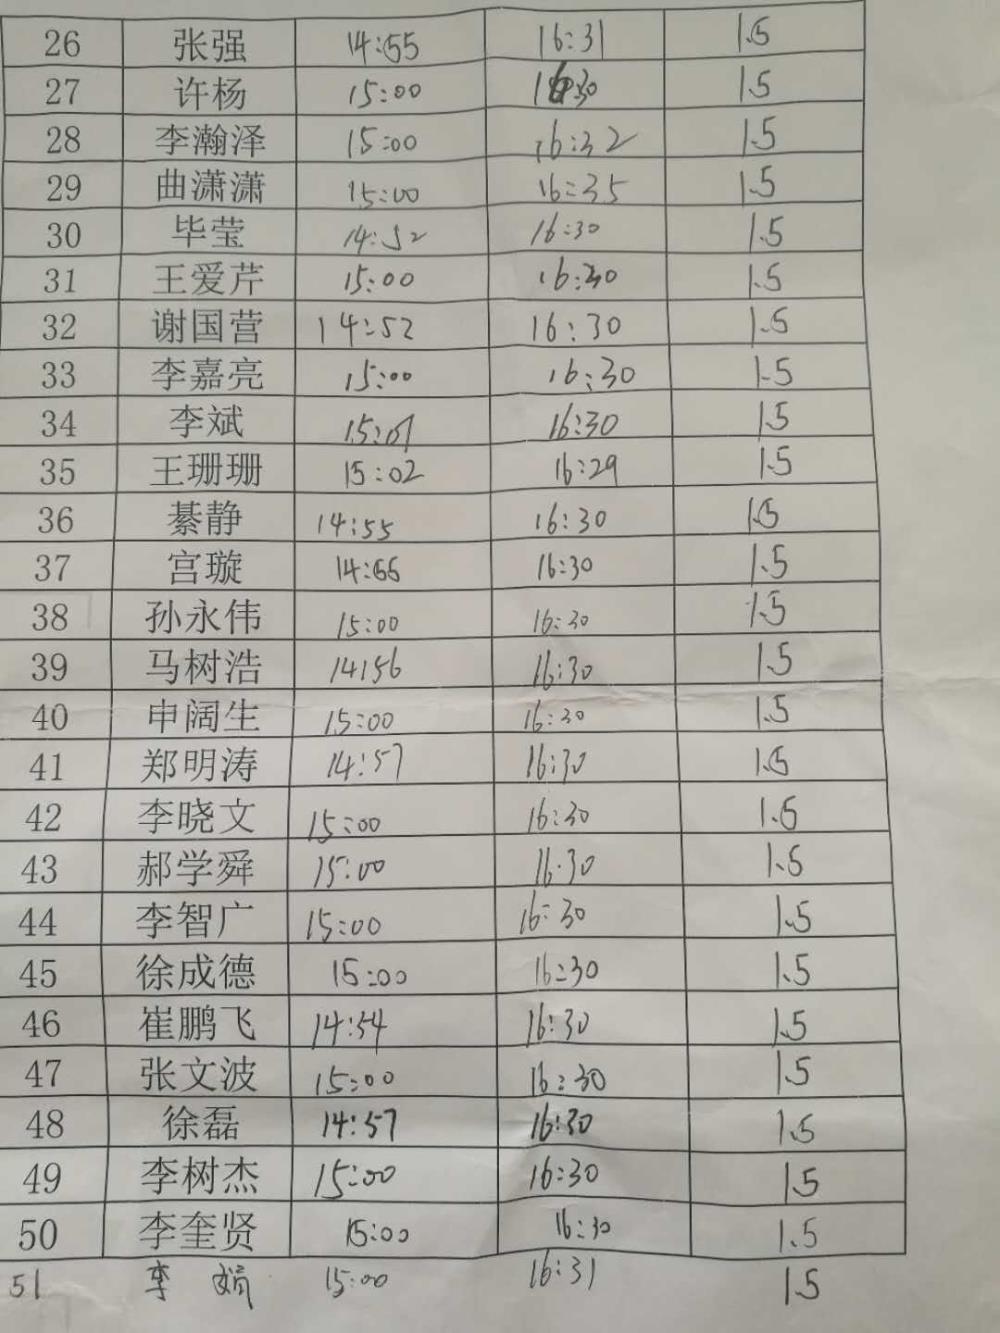 26 张强 14:55 16:31 1.5
27 许杨 15:00 16:30 1.5
28 李瀚泽 15:00 16:32 1.5
29 曲潇潇 15:00 16:35 1.5
30 毕莹 14:52 16:30 1.5
31 王爱芹 15:00 16:30 1.5
32 谢国营 14:52 16:30 1.5
33 李嘉亮 15:00 16:30 1.5
34 李斌 15:01 16:30 1.5
35 王珊珊 15:02 16:29 1.5
36 綦静 14:55 16:30 1.5
37 宫璇 14:55 16:30 1.5
38 孙永伟 15:00 16:30 1.5
39 马树浩 14:56 16:30 1.5
40 申阔生 15:00 16:30 1.5
41 郑明涛 14:57 16:30 1.5
42 李晓文 15:00 16:30 1.5
43 郝学舜 15:00 16:30 1.5
44 李智广 15:00 16:30 1.5
45 徐成德 15:00 16:30 1.5
46 崔鹏飞 14:54 16:30 1.5
47 张文波 15:00 16:30 1.5
48 徐磊 14:57 16:30 1.5
49 李树杰 15:00 16:30 1.5
50 李奎贤 15:00 16:30 1.5
51 李娟 15:00 16:31 1.5